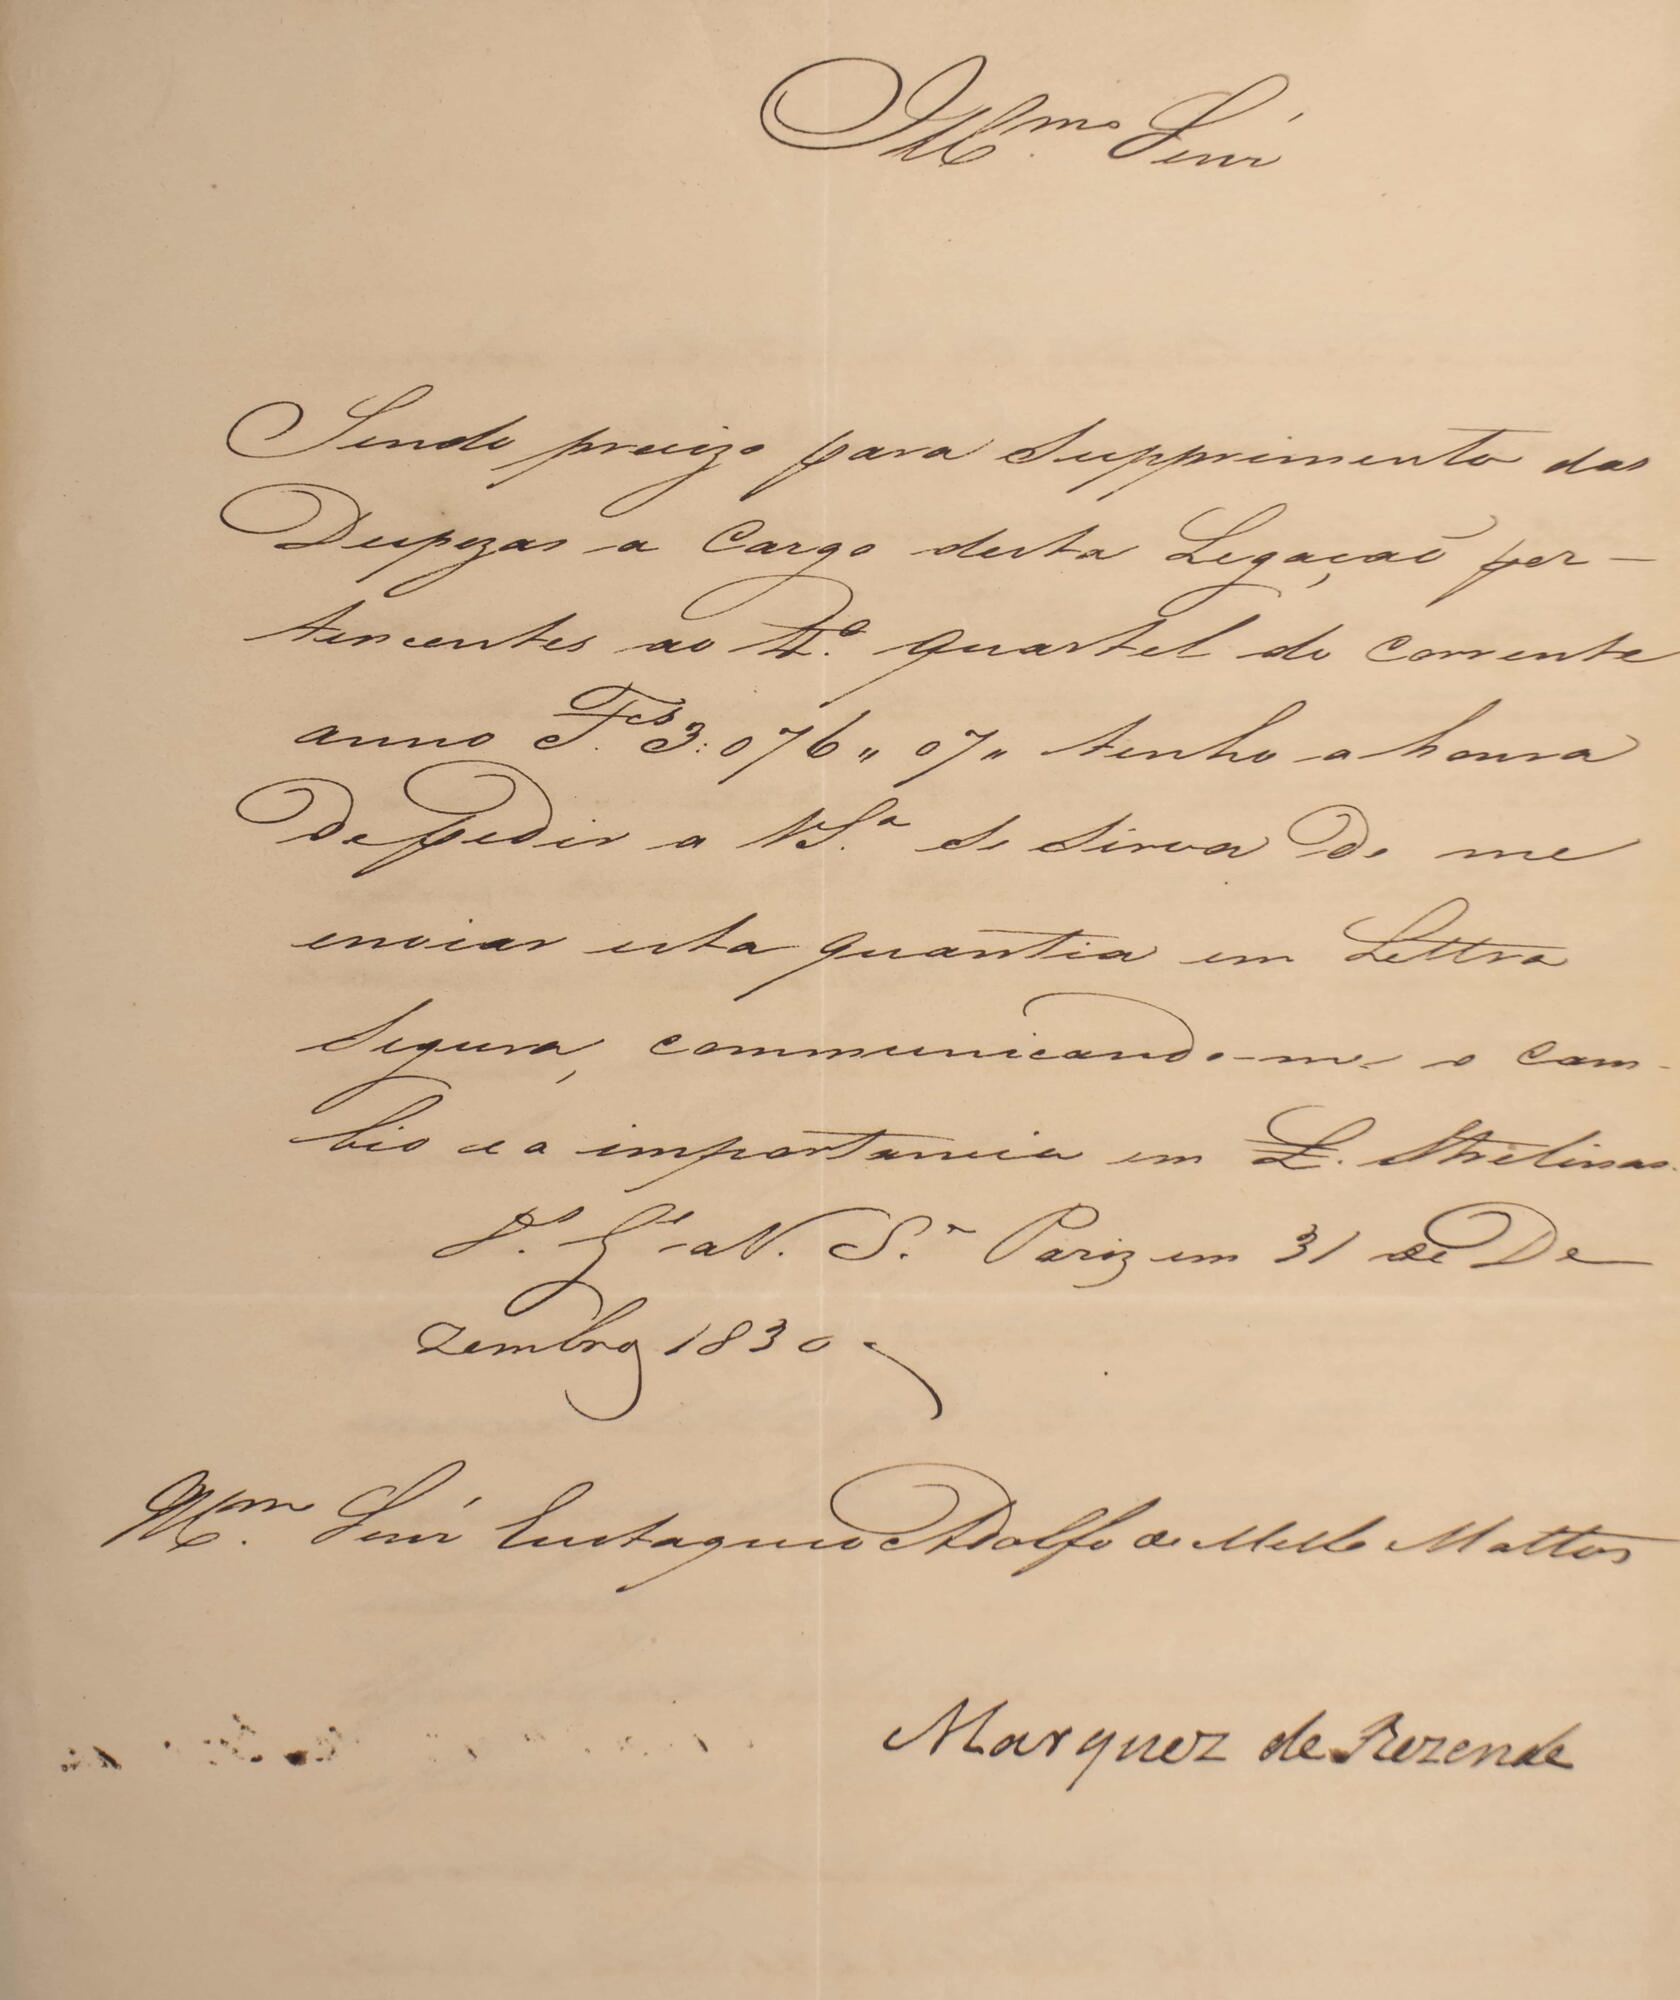 Ill.mo Senr.
Sendo precizo para supprimento das
Despezas a Cargo desta Legação per-
tencentes ao 4.º quartel do corrente
anno F.cs 3:076,, 07,, tenho a honra
De pedir a V S.ª se sirva De me
enviar esta quantia em Lettra
segura, communicando-me o cam-
bio e a importancia em £. Strelinas.
D.s G.e a V. S.ª Pariz em 31 de De
zembro 1830
Ill.mo Senr. Eustaquio Adolfo de Mello Mattos
Marquez de Rezende